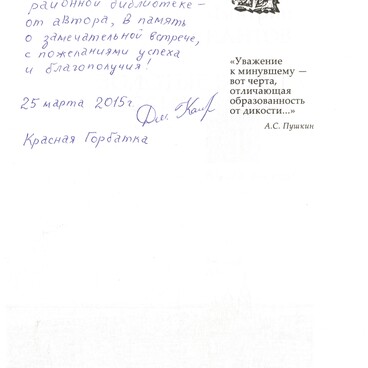 районной библиотеке –
от автора, в память
о замечательной встрече,
с пожеланиями успеха
и благополучия!
25 марта 2015г.
Красная Горбатка
«Уважение
к минувшему —
вот черта,
отличающая
образованность
от дикости...»
А.С. Пушкин